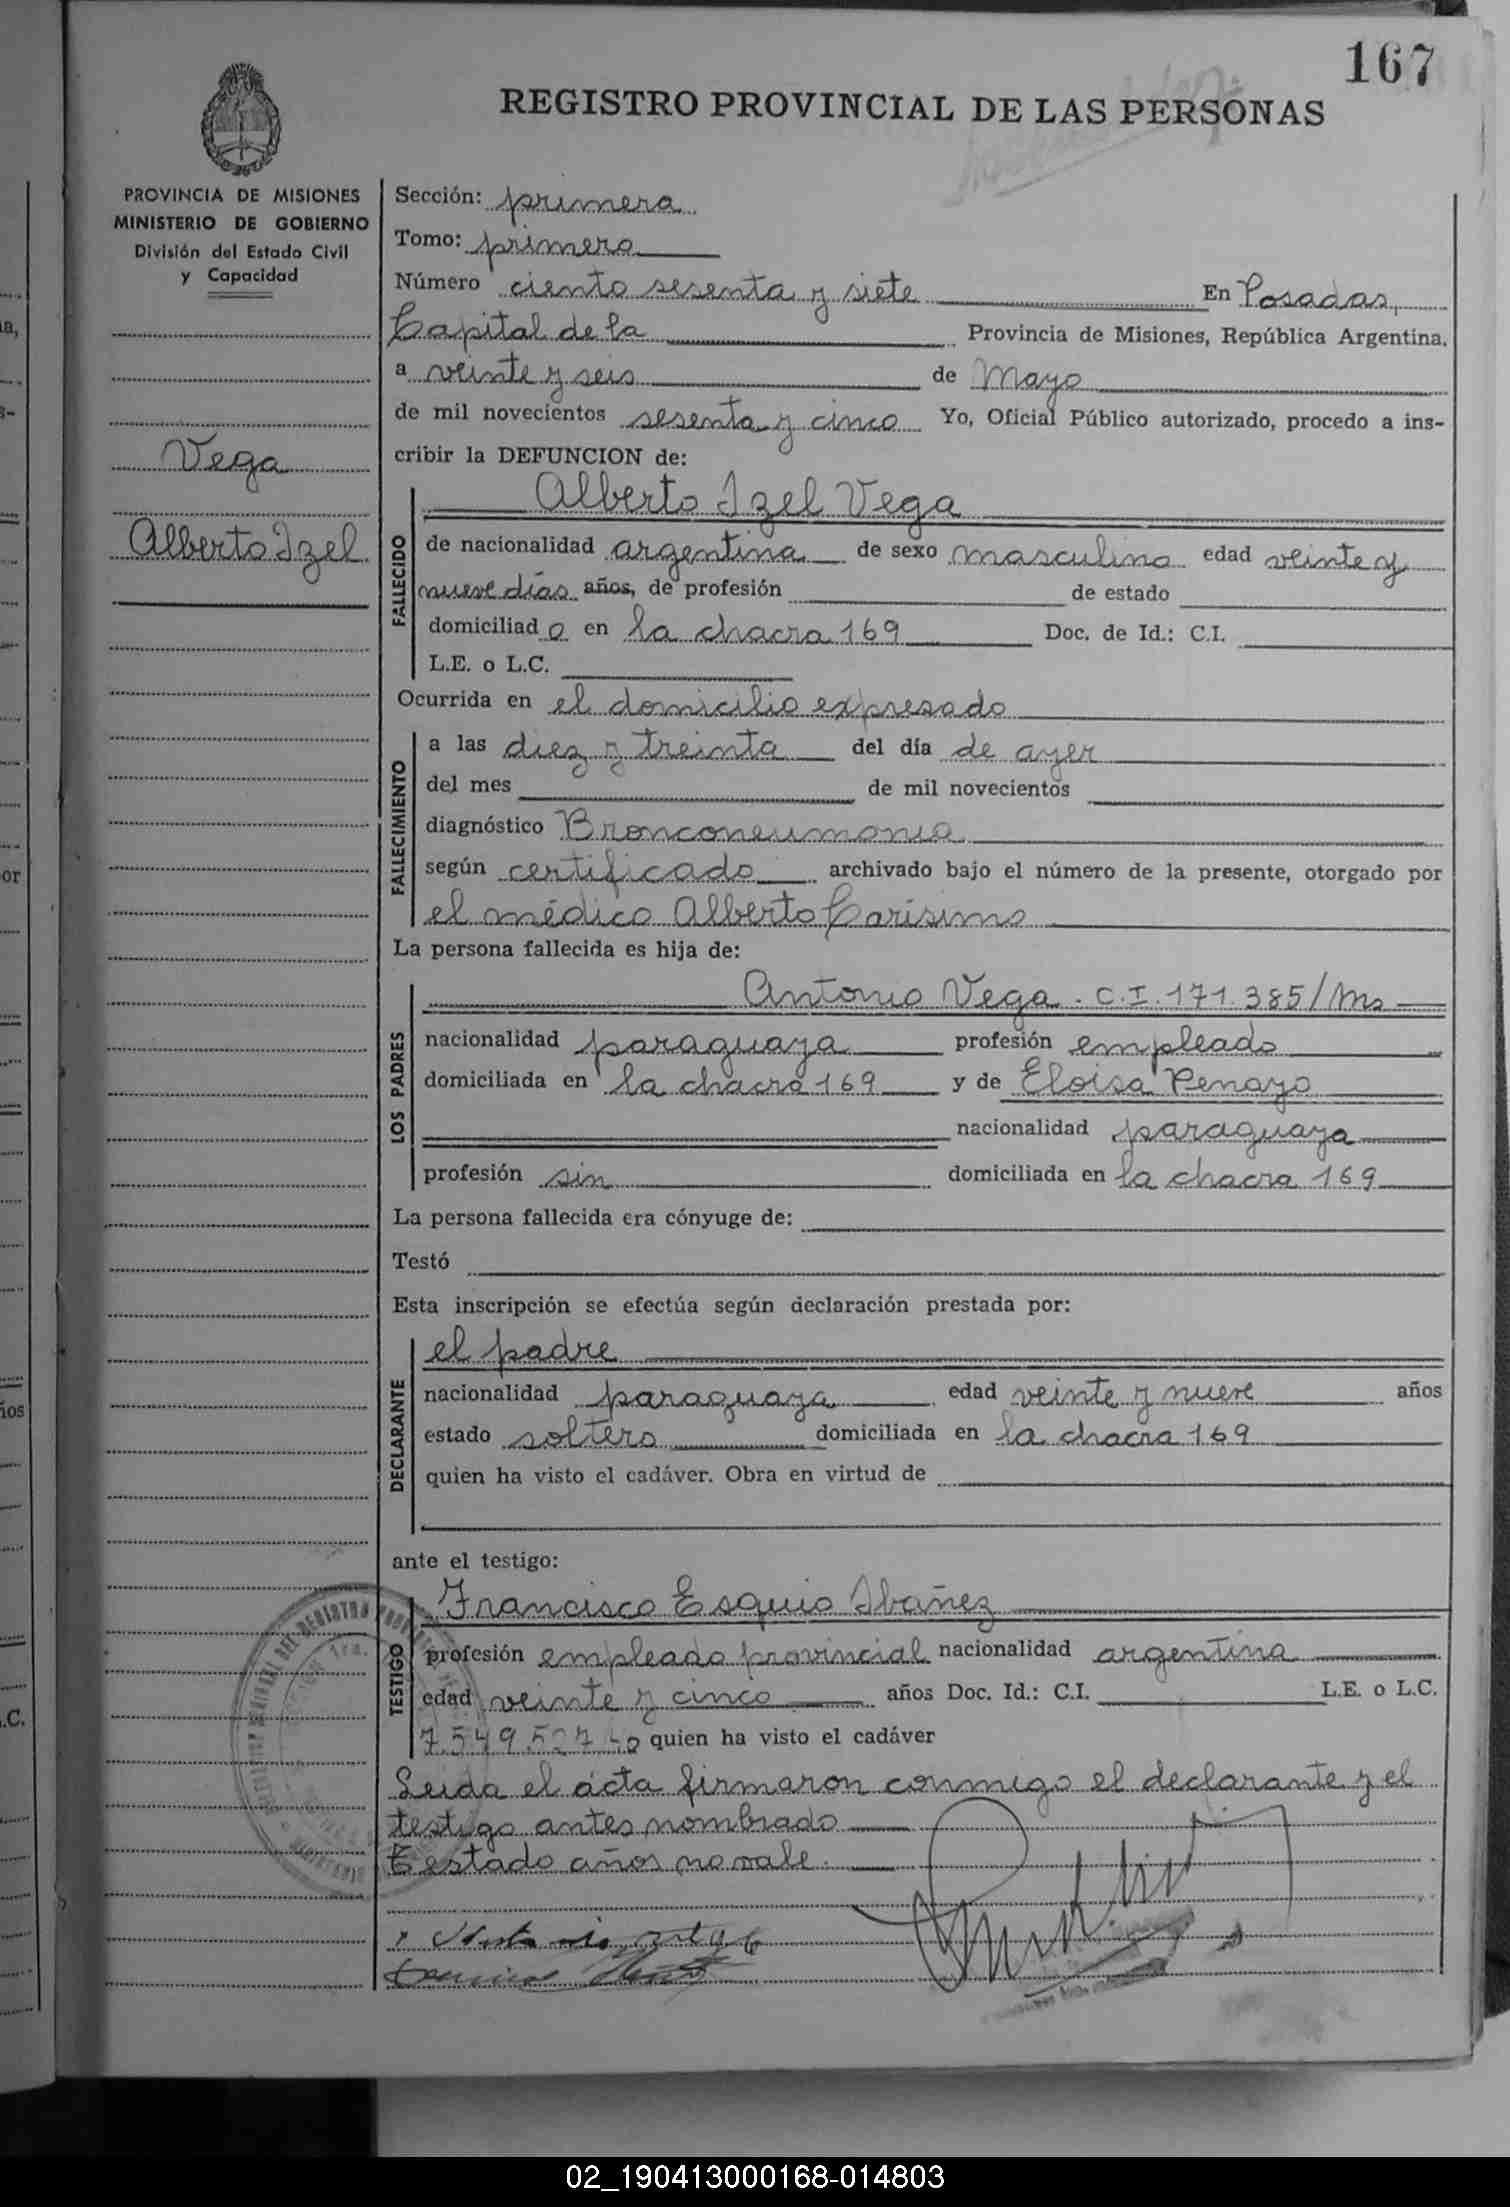 167
REGISTRO PROVINCIAL DE LAS PERSONAS
PROVINCIA DE MISIONES
MINISTERIO DE GOBIERNO
División del Estado Civil
y Capacidad
Vega
Alberto Izel
Sección: primera
Tomo: primero
Número ciento sesenta y siete En Posadas,
Capital de la Provincia de Misiones, República Argentina.
a veinte y seis de Mayo
de mil novecientos sesenta y cinco Yo, Oficial Público autorizado, procedo a ins-
cribir la DEFUNCION de:
FALLECIDO
Alberto Izel Vega
de nacionalidad argentina de sexo masculino edad veinte y
nueve días años, de profesión de estado
domiciliado en la chacra 169 Doc. de Id.: C.I.
L.E. o L.C.
Ocurrida en el domicilio expresado
FALLECIMIENTO
a las diez y treinta del día de ayer
del mes de mil novecientos
diagnóstico Bronconeumonia
según certificado archivado bajo el número de la presente, otorgado por
el médico Alberto Carísimo
La persona fallecida es hija de:
LOS PADRES
Antonio Vega. C.I. 171.385/Ms
nacionalidad paraguaya profesión empleado
domiciliada en la chacra 169 y de Eloisa Penayo
nacionalidad paraguaya
profesión sin domiciliada en la chacra 169
La persona fallecida era cónyuge de:
Testó
Esta inscripción se efectúa según declaración prestada por:
DECLARANTE
el padre
nacionalidad paraguaya edad veinte y nueve años
estado soltero domiciliada en la chacra 169
quien ha visto el cadáver. Obra en virtud de
ante el testigo:
TESTIGO
Francisco Esquio Ibañez
profesión empleado provincial nacionalidad argentina
edad veinte y cinco años Doc. Id.: C.I. L.E. o L.C.
quien ha visto el cadáver
Leida el acta firmaron conmigo el declarante y el
testigo antes nombrado
Testado años no vale.
02_190413000168-014803